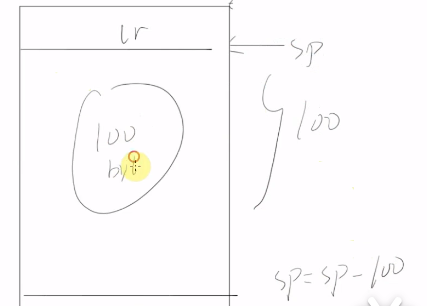 lr
sp
100
100
byt
sp=sp-100